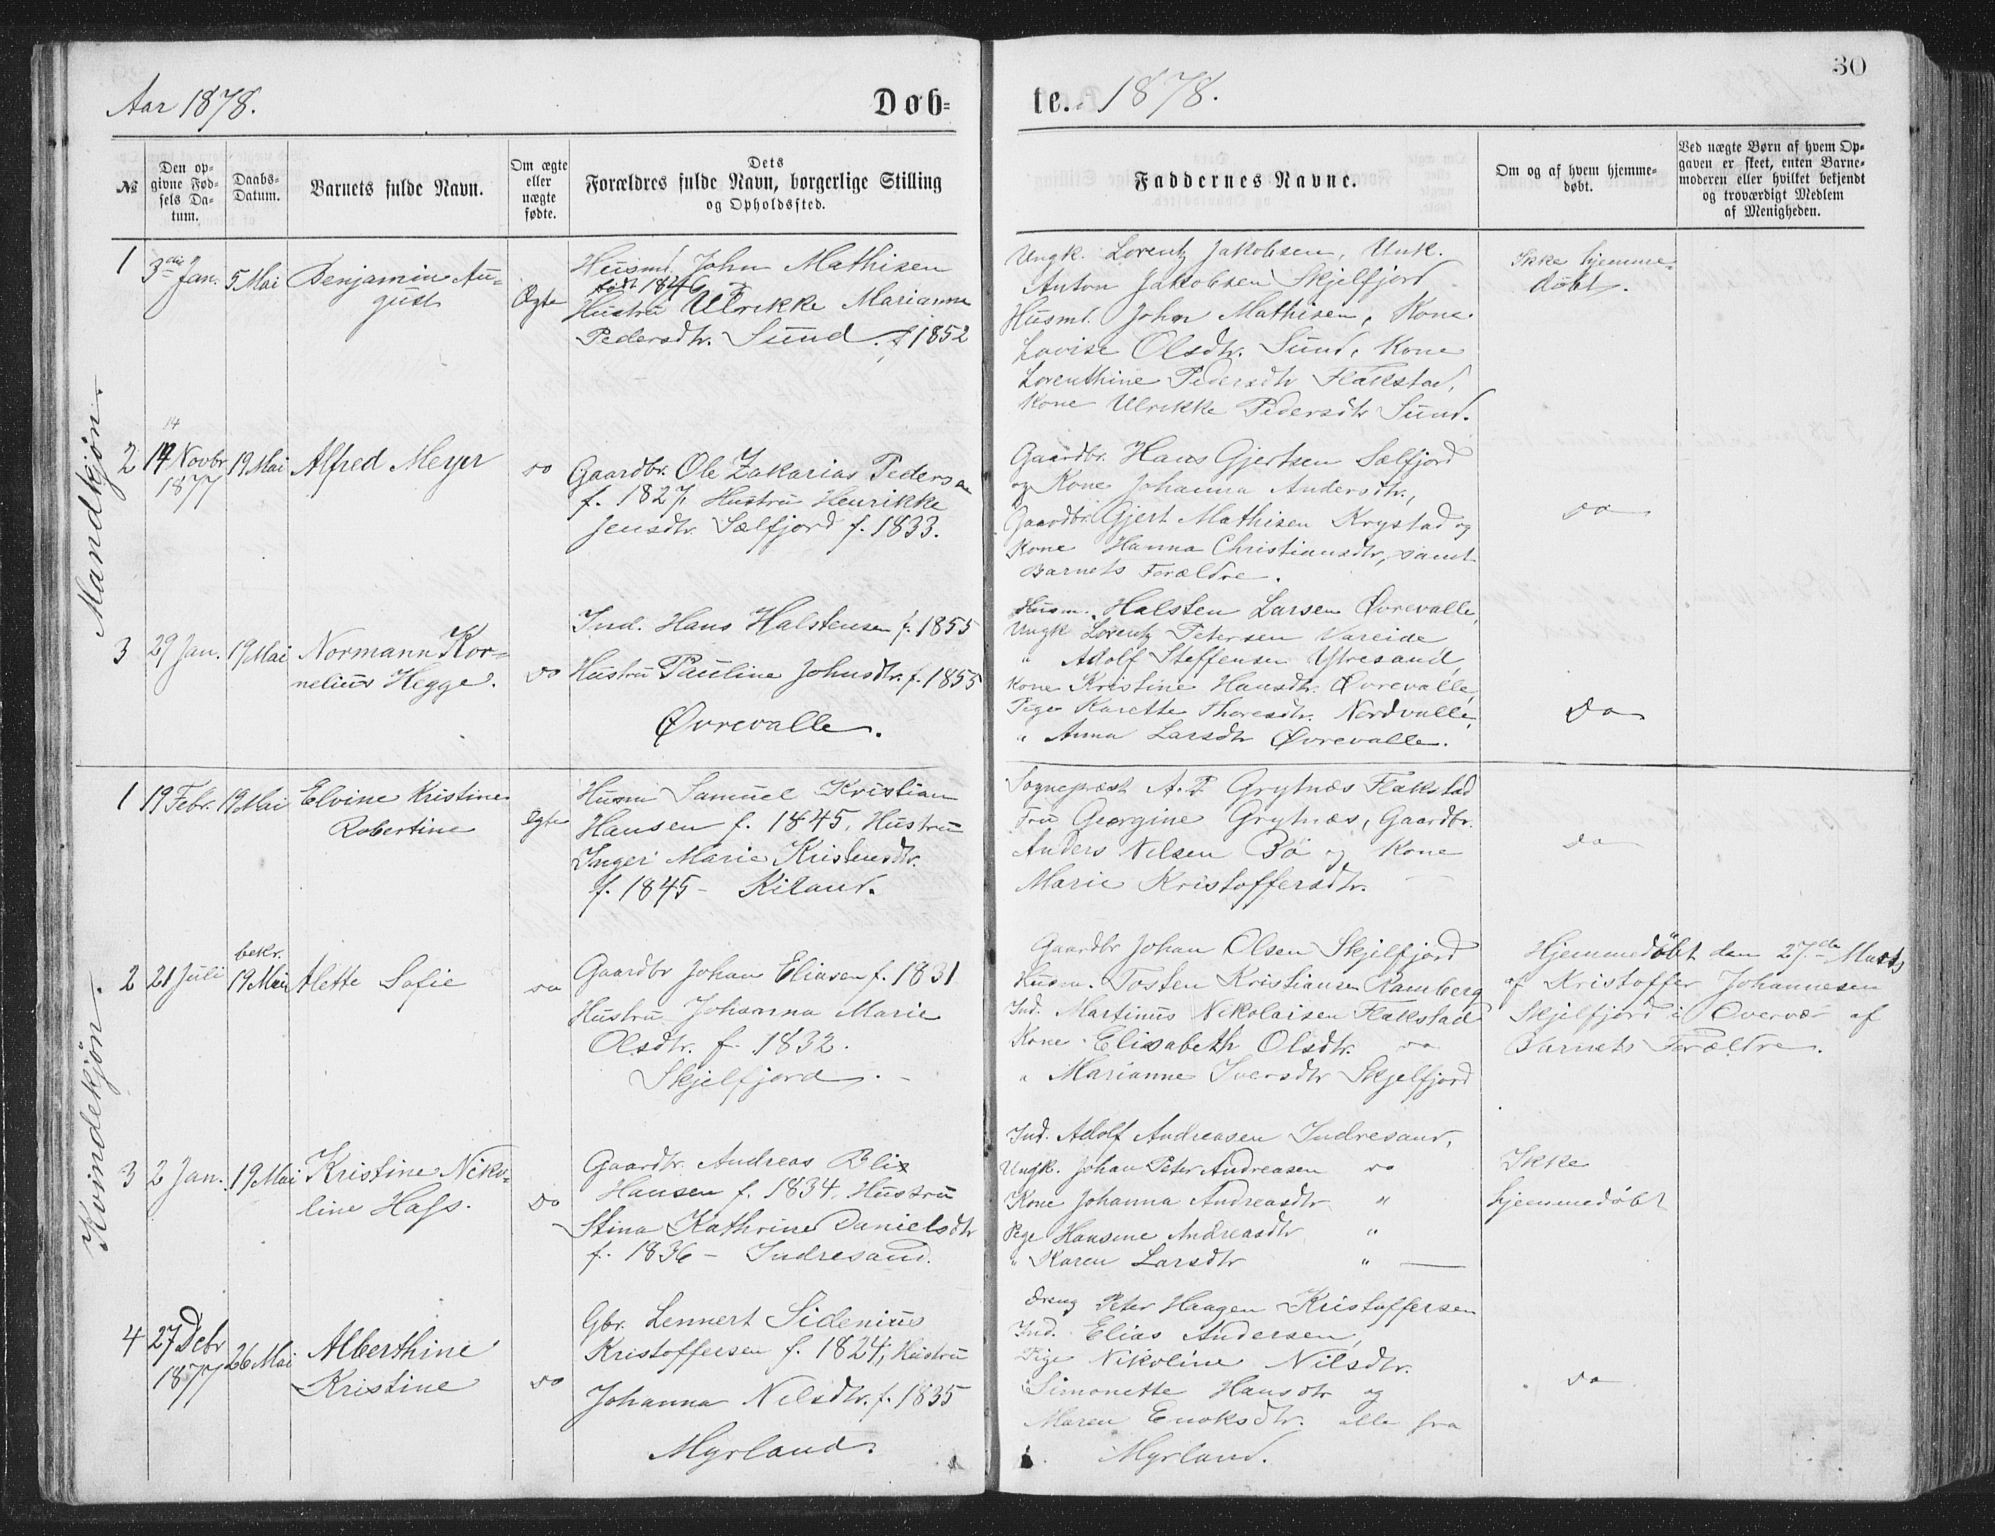 Aar 1878.
Døb=
te. 1878.
30
№
Den op-
givne Fød-
sels Da-
tum.
Daabs-
Datum.
Barnets fulde Navn.
Om ægte
eller
uægte
fødte.
Dets
Forældres fulde Navn, borgerlige Stilling
og Opholdssted.
Faddernes Navne.
Om og af hvem hjemme-
døbt.
Ved uægte Børn af hvem Op-
gaven er skeet, enten Barne-
moderen eller hvilket bekjendt
og troværdigt Medlem
af Menigheden.
Mandkjøn.
1
3die Jan.
5 Mai
Benjamin Au-
gust
Ægte
Husmd. John Mathisen
født 1846
Hustru Ulrikke Marianne
Pedersdtr. Sund. f 1852
Ungk. Lorentz Jakobsen, Unk.
Anton Jakobsen Skjelfjord
Husmd. John Mathisen, Kone
Lovise Olsdtr. Sund, Kone
Lorenthine Pedersdtr Flakstad,
Kone Ulrikke Pedersdtr Sund.
Ikke hjemme-
døbt.
2
14
14 Novbr
1877
19 Mai
Alfred Meyer
do
Gaardbr. Ole Zakarias Pedersen
f. 1827, Hustru Henrikke
Jensdtr. Sælfjord f. 1833.
Gaardbr. Hans Gjertsen Sælfjord
og Kone Johanna Andersdtr.,
Gaardbr. Gjert Mathisen Krystad og
Kone Hanna Christiansdtr, samt
Barnets Forældre.
do
3
29 Jan.
19 Mai
Normann Kor-
nelius Hegge.
do
Ind. Hans Halstensen f. 1855
Hustru Pauline Johnsdtr. f. 1855
Øvrevalle.
Husm. Halsten Larsen Øvrevalle,
Ungk Lorentz Petersen Vareide
" Adolf Steffensen Ytresand,
Kone Kristine Hansdtr. Øvrevalle,
Pige Karette Thoresdtr. Nordvalle,
" Anna Larsdtr Øvrevalle.
Do
Kvindekjøn.
1
19 Febr.
19 Mai
Elvine Kristine
Robertine
Ægte
Husm Samuel Kristian
Hansen f. 1845, Hustru
Inger Marie Kristensdtr.
f. 1845 - Kiland.
Sognepræst A. P. Grytnæs Flakstad
Fru Georgine Grytnæs, Gaardbr.
Anders Nilsen Bö og Kone
Marie Kristoffersdtr.
do
2
21 Juli
bekr.
19 Mai
Alette Sofie
do
Gaardbr Johan Eliasen f. 1831
Hustru Johanna Marie
Olsdtr. f. 1832.
Skjelfjord.
Gaardbr Johan Olsen Skjelfjord
Husm. Tosten Kristiansen Ramberg
Ind. Martinus Nikolaisen Flakstad
Kone Elisabeth Olsdtr. do
" Marianne Iversdtr Skjelfjord
Hjemmedøbt den 27de Marts
af Kristoffer Johannesen
Skjelfjord i Overvær af
Barnets Forældre.
3
2 Jan.
19 Mai
Kristine Niko-
line Hass.
do
Gaardbr. Andreas Blix
Hansen f. 1834, Hustru
Stina Kathrine Danielsdtr
f. 1836 - Indresand.
Ind. Adolf Andreasen Indresand,
Ungk. Johan Peter Andreasen do
Kone Johanna Andreasdtr "
Pige Hansine Andreasdtr "
" Karen Larsdtr "
Ikke
hjemmedøbt
4
27 Debr
1877
26 Mai
Alberthine
Kristine
do
Gbr. Lennert Sidenius
Kristoffersen f. 1824, Hustru
Johanna Nilsdtr. f. 1835
Myrland.
Dreng Peter Haagen Kristoffersen
Ind. Elias Andersen,
Pige Nikoline Nilsdtr.
Simonette Hansdtr og
Maren Enoksdtr. alle fra
Myrland.
do